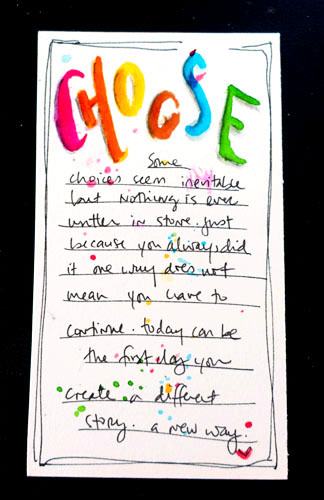 CHOOSE
Some
choices seem inevitable
but nothing is ever
written in stone. just
because you always did
it one way does not
mean you have to
continue. today can be
the first day you
create a different
story. a new way.